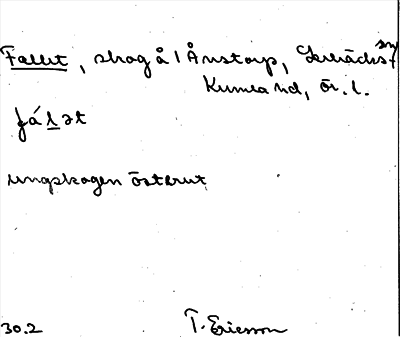 Fallet, skog å 1 Ånstorp, Lerbäcks sn
Kumla hd, Ör. l.
fálət
ungskogen österut
30.2 T. Ericsson